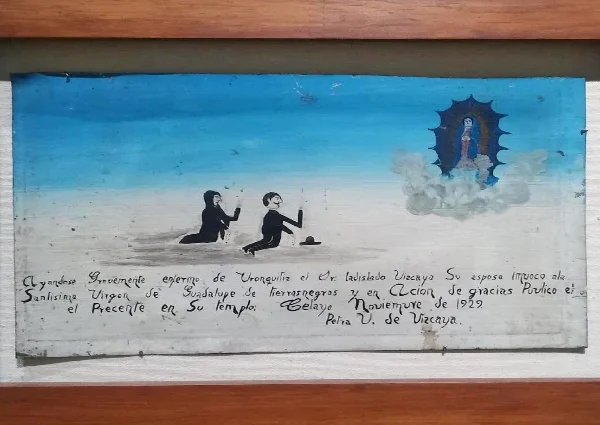 Ayandose Gravemente enfermo de Vronquitis el Sr. ladislado Vizcaya Su esposa imvoco ala
Santisima Virgen de Guadalupe de tierrasnegras y en Acion de gracias Puvlico
el Precente en Su templo. Celaya Noviemvre de 1929.
Petra V. de Vizcaya.